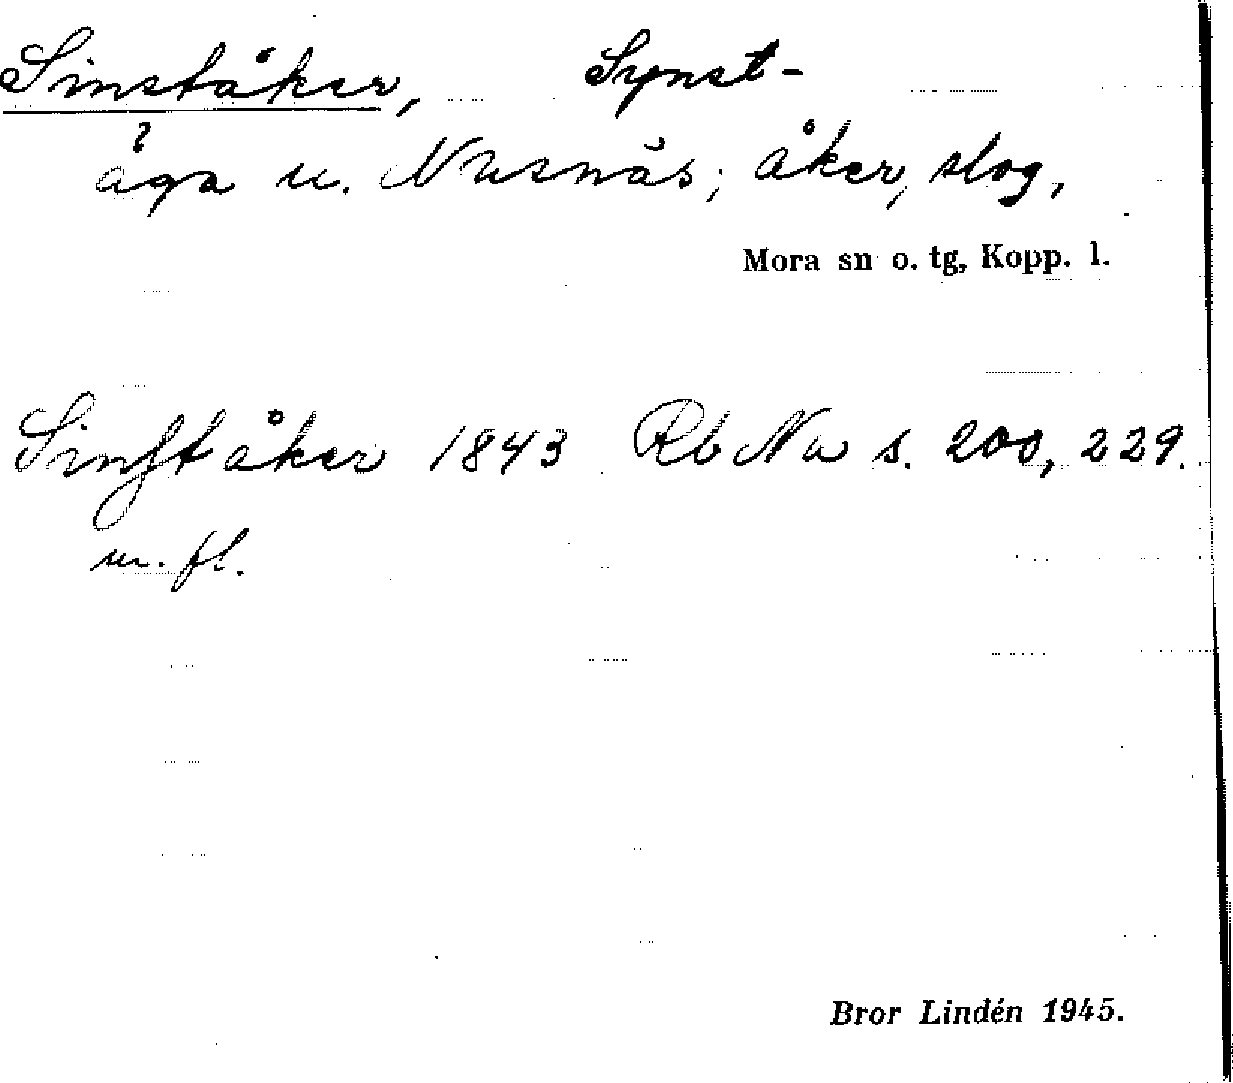 Sinståker, Synst-
åga u. Nusnäs; åker, slog,
Mora sn o. tg, Kopp. l.
Sinſtåker 1843 Rb Nu s. 200, 229.
m. fl.
Bror Lindén 1945.